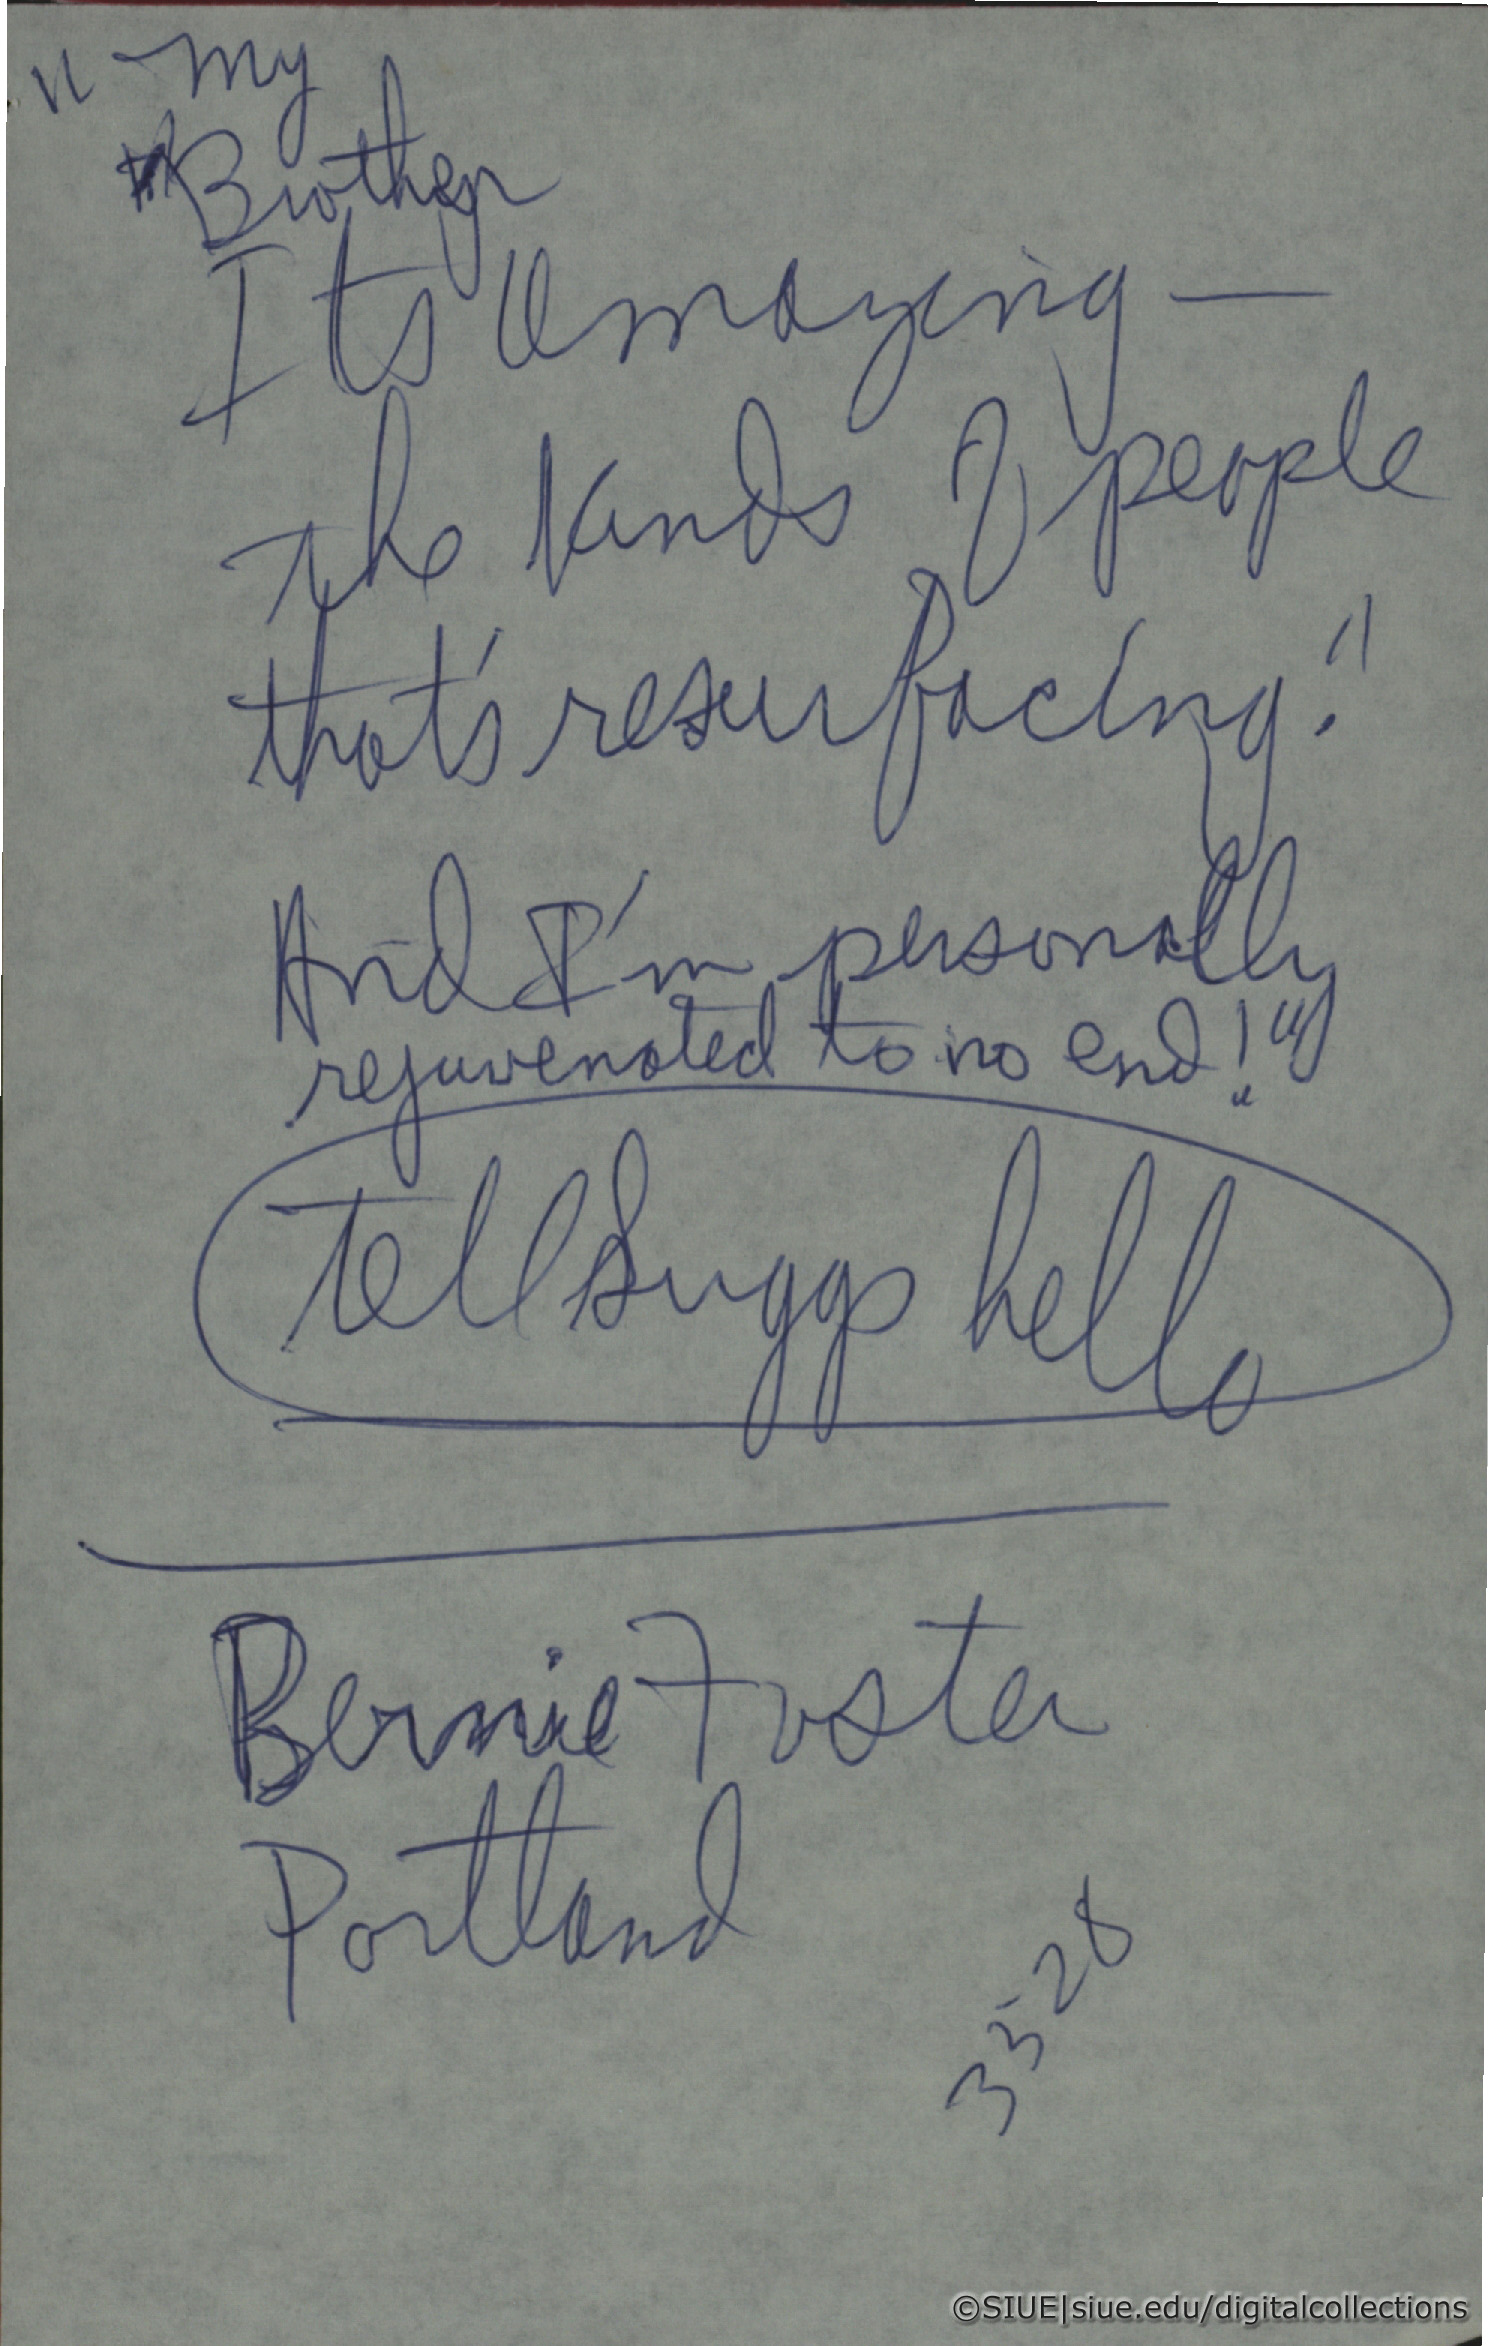 " my
Brother
Its Amazing —
the kinds of people
that's resurfacing!
And I'm personally
rejuvenated to no end!"
tell Suggs hello
Bernie Foster
Portland
33-28
©SIUE|siue.edu/digitalcollections